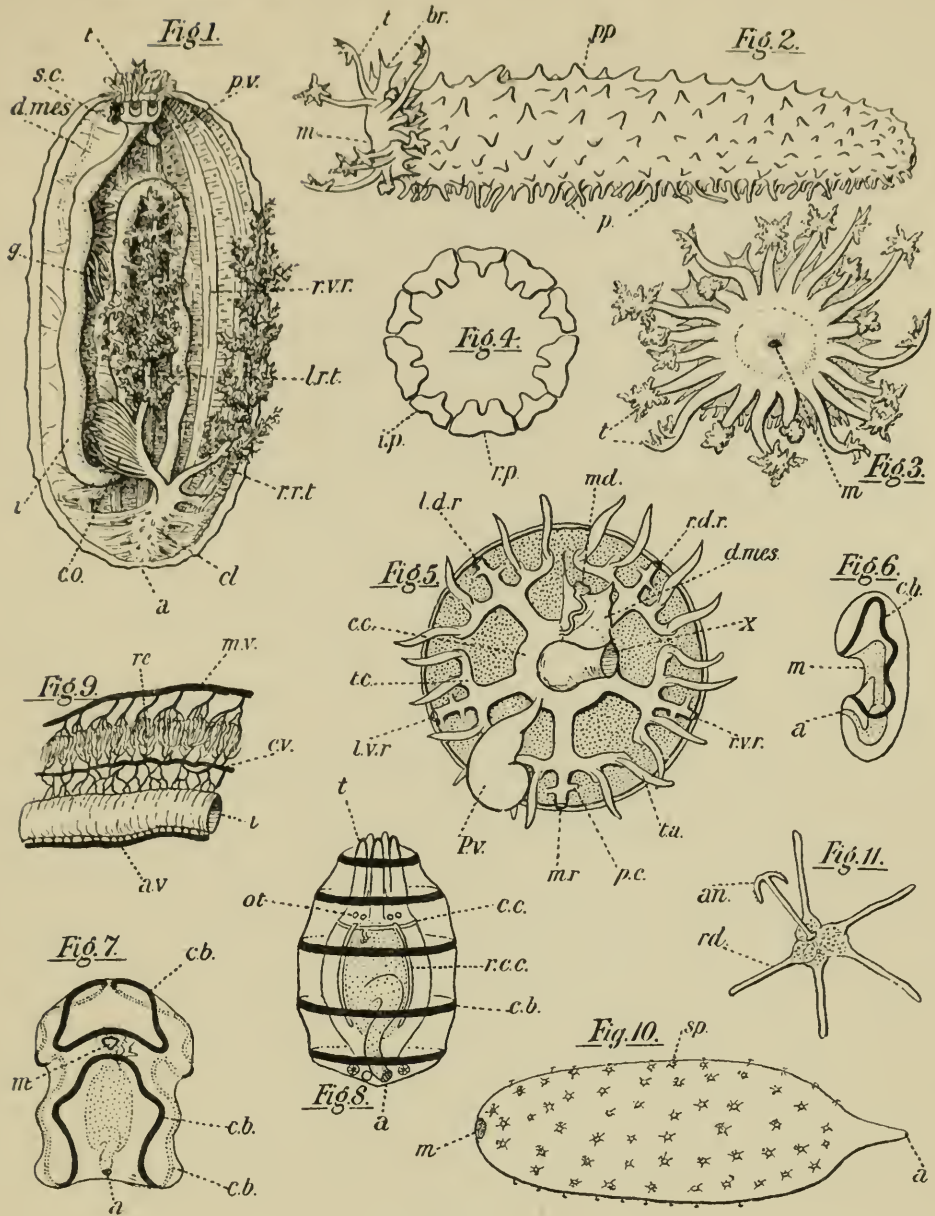 Fig.1.
t
s.c.
d.mes.
p.v.
g.
r.v.r.
l.r.t.
i
r.r.t
c.o.
cl
a
Fig.2.
t
br.
pp
m
p.
Fig.3.
t
m
Fig.4.
i.p.
r.p.
Fig.5.
l.d.r
md.
r.d.r.
d.mes.
c.c.
x
t.c.
l.v.r
r.v.r.
P.v.
m.r
p.c.
t.a.
Fig.6.
c.b.
m
a
Fig.9.
rc
m.v.
c.v.
i
a.v
Fig.7.
c.b.
m.
c.b.
c.b.
a
t
ot
c.c.
r.c.c.
c.b.
Fig.8.
a
Fig.11.
an.
rd.
Fig.10.
sp.
m
a